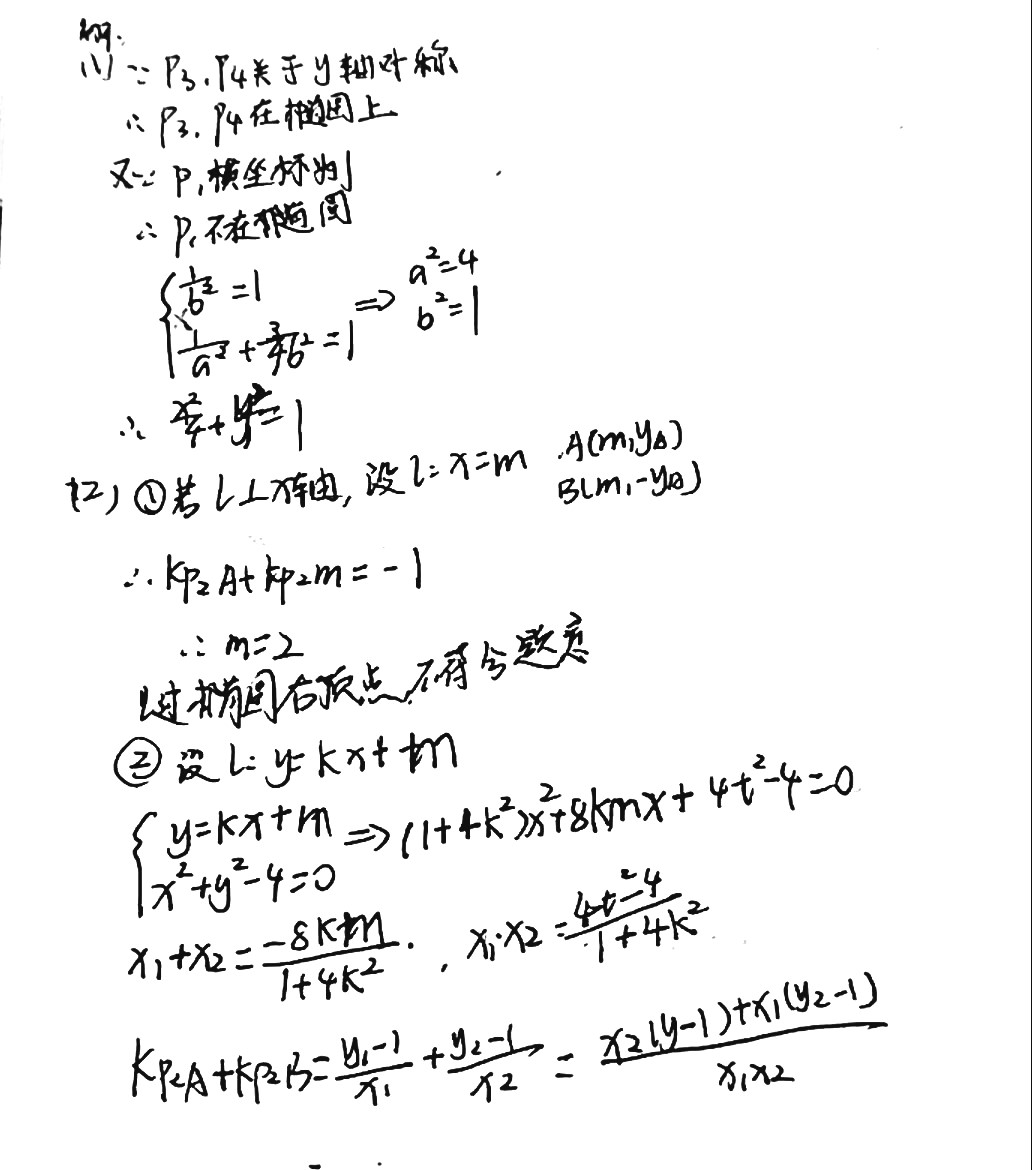 解:
(1) ∵ P3,P4关于y轴对称
∴ P3,P4在椭圆上
又∵ P1横坐标为1
∴ P1不在椭圆
{1/b²=1 ⇒ a²=4
1/a²+3/4b²=1 b²=1
∴ x²/4+y²=1
(2) ①若l⊥x轴,设l:x=m A(m,yA)
B(m,-yA)
∴ kP2A+kP2m=-1
∴ m=2
l过椭圆右顶点,不符合题意
②设l:y=kx+m
{y=kx+m ⇒ (1+4k²)x²+8kmx+4t²-4=0
x²+y²-4=0
x1+x2=-8km/1+4k², x1·x2=4t²-4/1+4k²
kP2A+kP2B=y1-1/x1+y2-1/x2=x2(y-1)+x1(y2-1)/x1x2